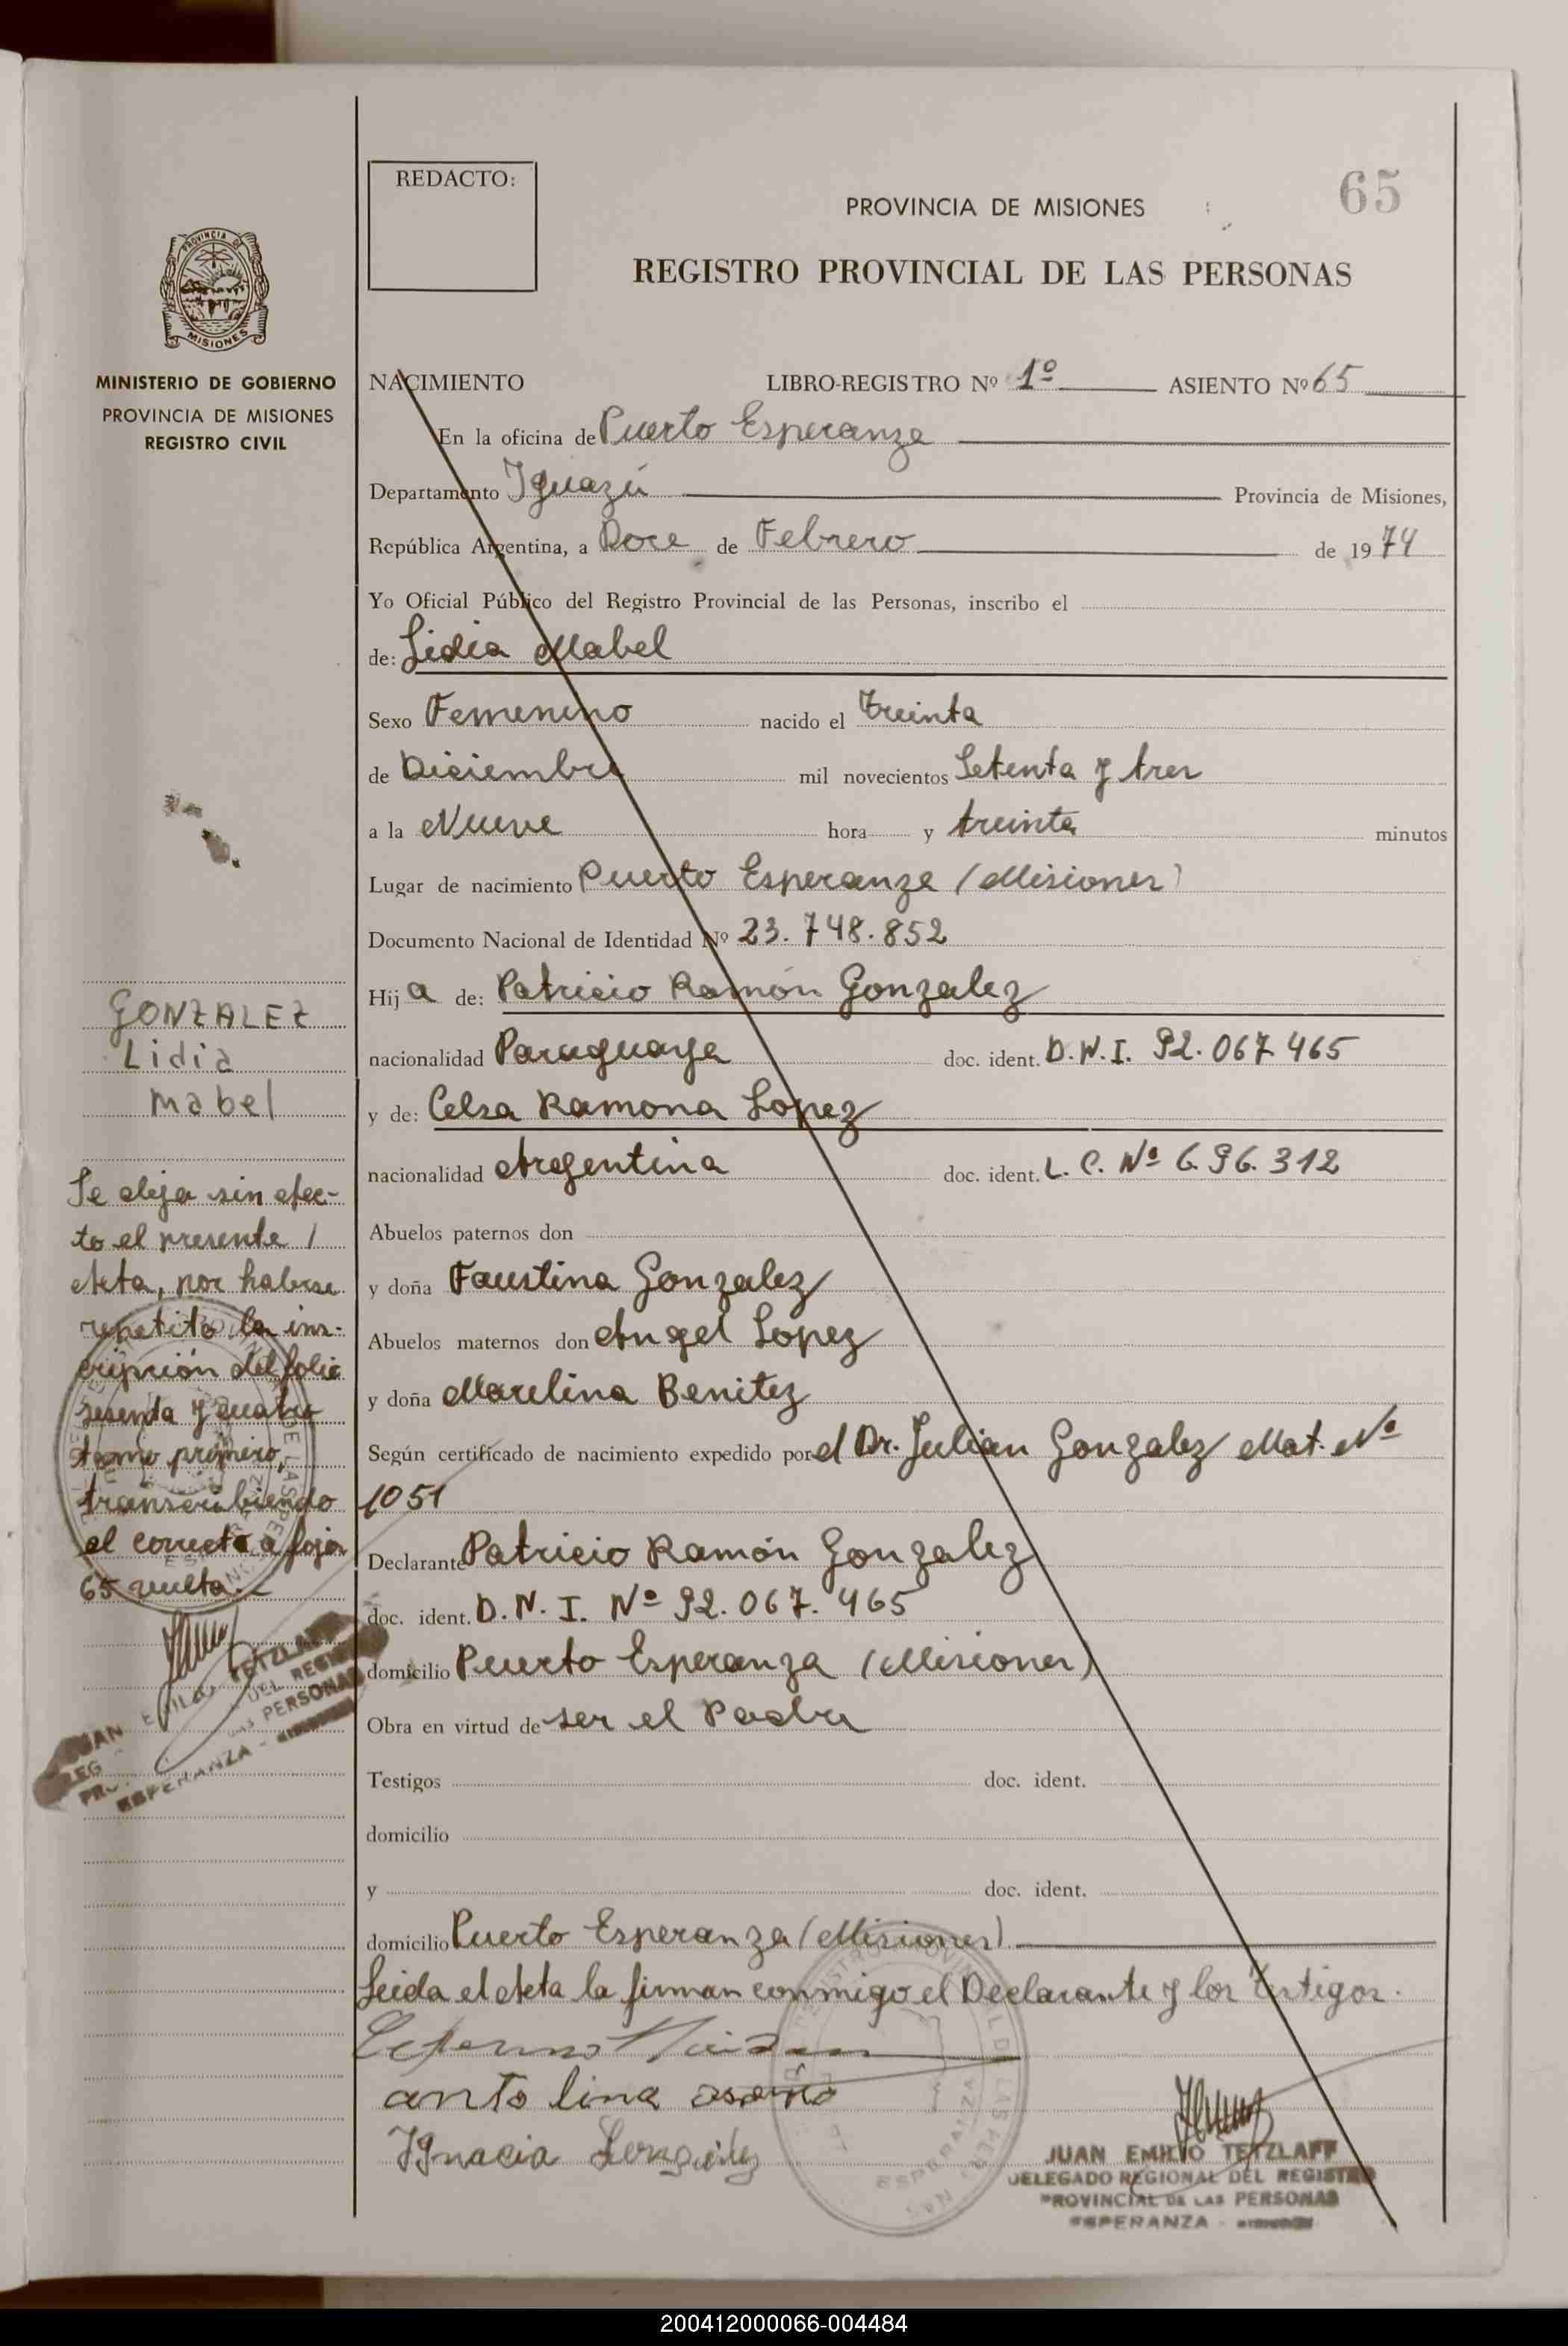 REDACTO:
65
PROVINCIA DE MISIONES
REGISTRO PROVINCIAL DE LAS PERSONAS
PROVINCIA DE
MISIONES
MINISTERIO DE GOBIERNO
PROVINCIA DE MISIONES
REGISTRO CIVIL
NACIMIENTO LIBRO-REGISTRO Nº 1º ASIENTO Nº 65
En la oficina de Puerto Esperanza
Departamento Iguazú Provincia de Misiones,
República Argentina, a Doce de Febrero de 1974
Yo Oficial Público del Registro Provincial de las Personas, inscribo el
de: Lidia Mabel
Sexo Femenino nacido el Treinta
de Diciembre mil novecientos Setenta y tres
a la Nueve hora y treinta minutos
Lugar de nacimiento Puerto Esperanza (Misiones)
Documento Nacional de Identidad Nº 23.748.852
Hija de: Patricio Ramón Gonzalez
nacionalidad Paraguaya doc. ident. D.N.I. 92.067.465
y de: Celsa Ramona Lopez
nacionalidad Argentina doc. ident. L.C. Nº 6.96.312
Abuelos paternos don
y doña Faustina Gonzalez
Abuelos maternos don Angel Lopez
y doña Marelina Benitez
Según certificado de nacimiento expedido por el Dr. Julian Gonzalez Mat. Nº
1051
Declarante Patricio Ramón Gonzalez
doc. ident. D.N.I. Nº 92.067.465
domicilio Puerto Esperanza (Misiones)
Obra en virtud de ser el Padre
Testigos doc. ident.
domicilio
y doc. ident.
domicilio Puerto Esperanza (Misiones)
Leida el Acta la firman conmigo el Declarante y los Testigos.
antolina
Ignacia
JUAN EMILIO TETZLAFF
DELEGADO REGIONAL DEL REGISTRO
PROVINCIAL DE LAS PERSONAS
ESPERANZA -
GONZALEZ
Lidia
Mabel
Se deja sin efec-
to el presente /
Acta, por haberse
repetito la ins-
cripción del folio
sesenta y cuatro
tomo primero,
transcribiendo
el correcto a fojas
65 vuelta.-
JUAN EMILIO TETZLAFF
DEL REGIS
LAS PERSONAS
ESPERANZA -
200412000066-004484